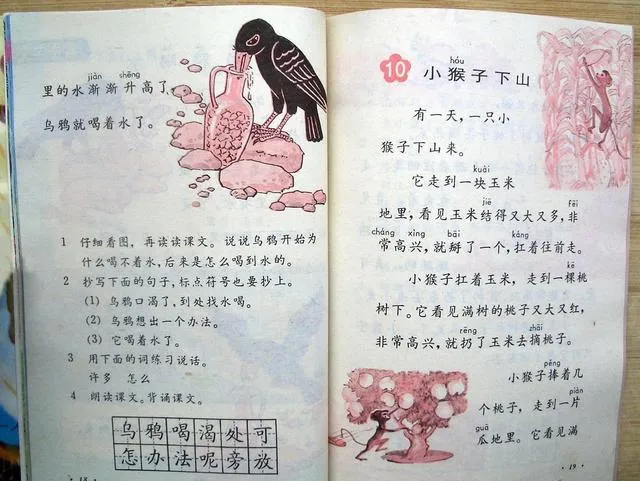 jiàn shēng
里的水渐渐升高了
乌鸦就喝着水了。
1 仔细看图，再读读课文。说说乌鸦开始为
什么喝不着水，后来是怎么喝到水的。
2 抄写下面的句子，标点符号也要抄上。
(1) 乌鸦口渴了，到处找水喝。
(2) 乌鸦想出一个办法。
(3) 它喝着水了。
3 用下面的词练习说话。
许多 怎么
4 朗读课文。背诵课文。
乌鸦喝渴处可
怎办法呢旁放
·18·
hóu
10 小猴子下山
有一天，一只小
猴子下山来。
kuài
它走到一块玉米
jiē fēi
地里，看见玉米结得又大又多，非
cháng xìng bāi káng
常高兴，就掰了一个，扛着往前走。
kē
小猴子扛着玉米，走到一棵桃
树下。它看见满树的桃子又大又红，
rēng zhāi
非常高兴，就扔了玉米去摘桃子。
pěng
小猴子捧着几
个桃子，走到一片
guā
瓜地里。它看见满
·19·